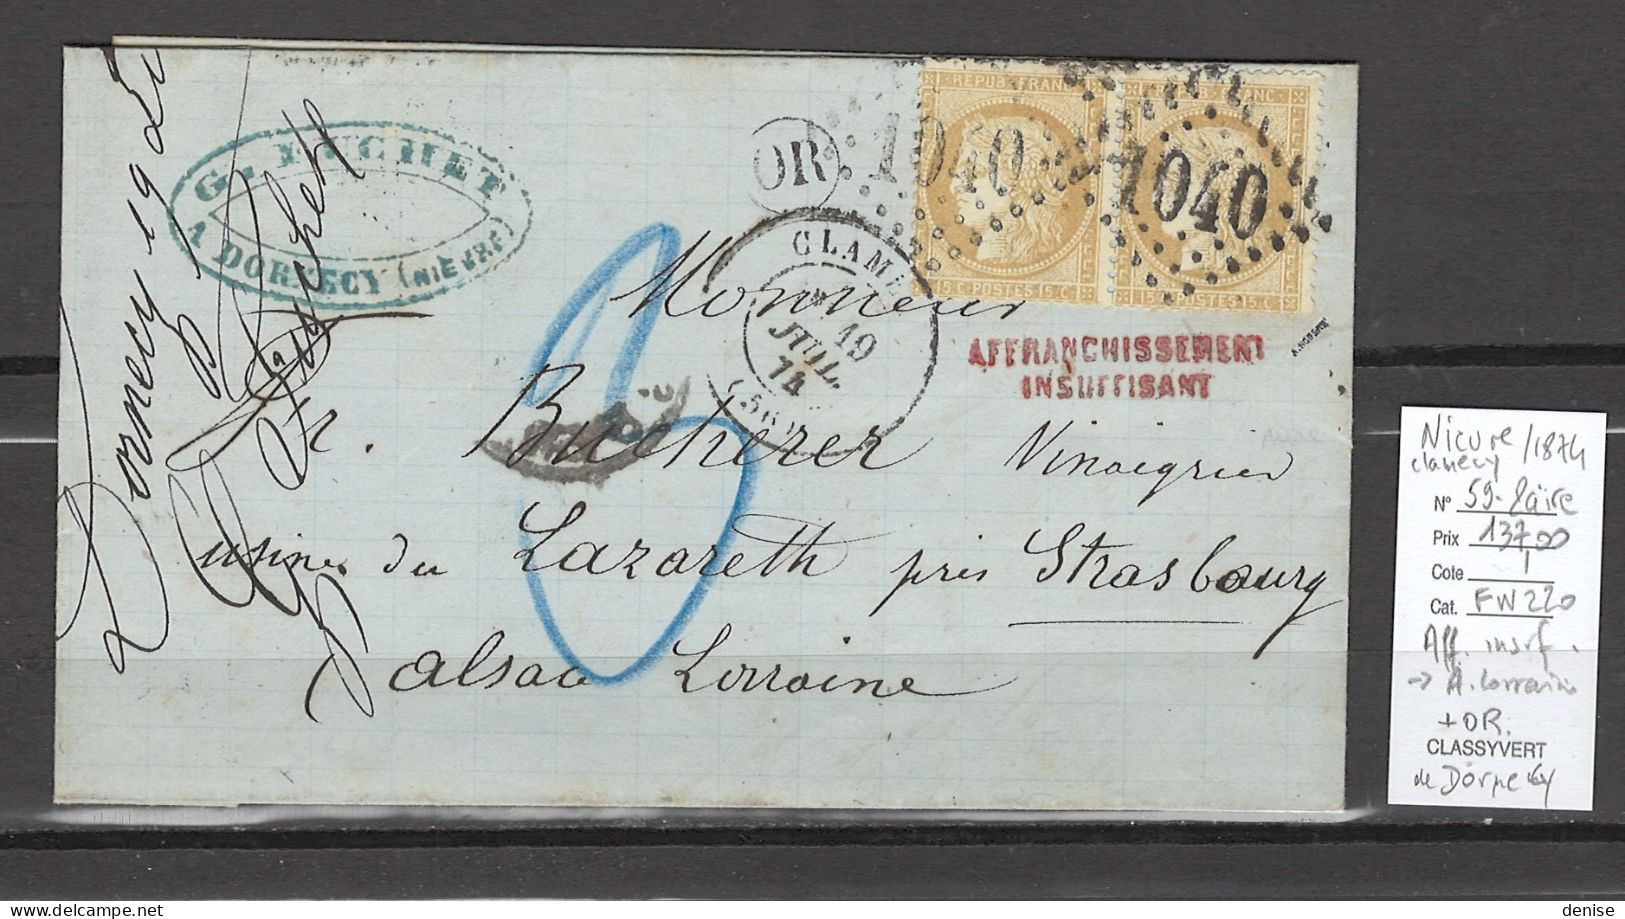 Dornecy 19
G. FUCHET
A DORNECY (NIÈVRE)
OR
REPUB. FRANC.
1040
15 C POSTES 15 C
FRANC
1040
15 C POSTES 15 C
CLAME
19
JUIL.
74
(56)
AFFRANCHISSEMENT
INSUFFISANT
3
Monsieur
Bucherer Vinaigrier
usine du Lazareth près Strasbourg
Alsace Lorraine
Nievre / 1874
clamecy
N° 59-Paire
Prix 137,00
Cote
Cat. FW220
Aff. insuf.
→ A. Lorraine
+ OR.
CLASSYVERT
de Dornecy
delcampe.net
denise